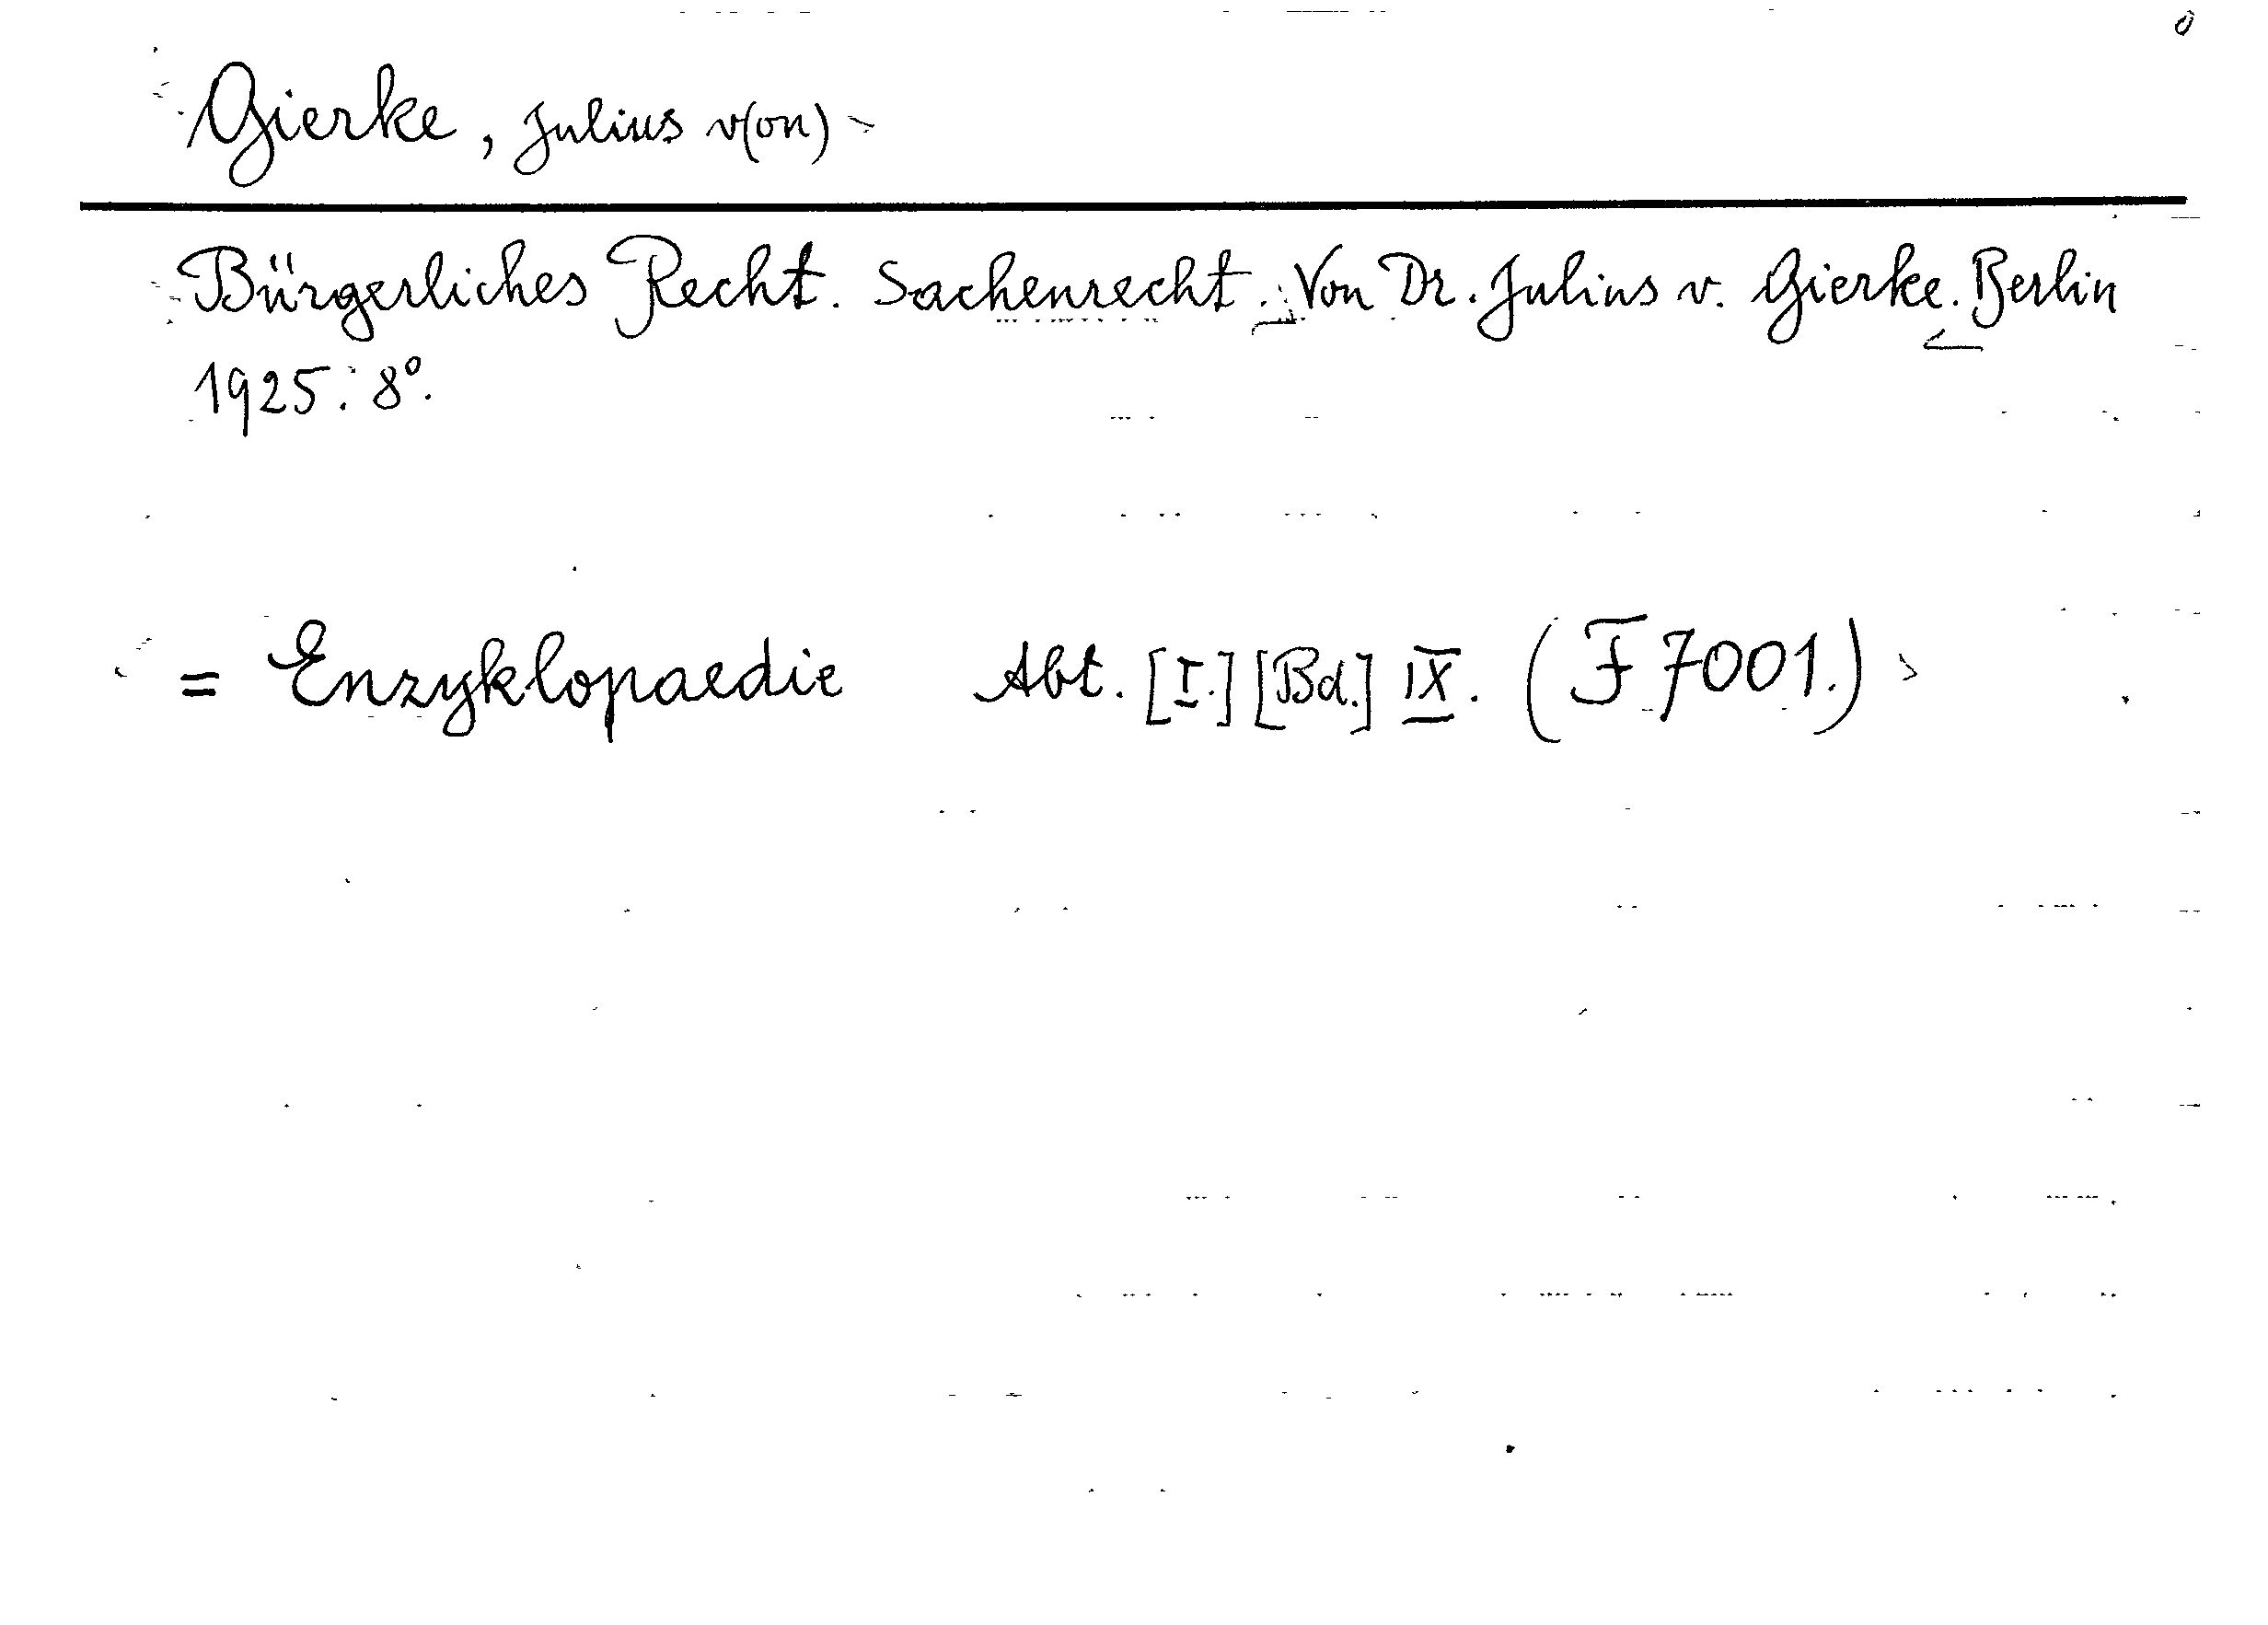 Gierke, Julius v(on)
Bürgerliches Recht. Sachenrecht. Von Dr. Julius v. Gierke. Berlin
1925. 8°.
= Enzyklopaedie Abt. [I.] [Bd.] IX. (F 7001.)